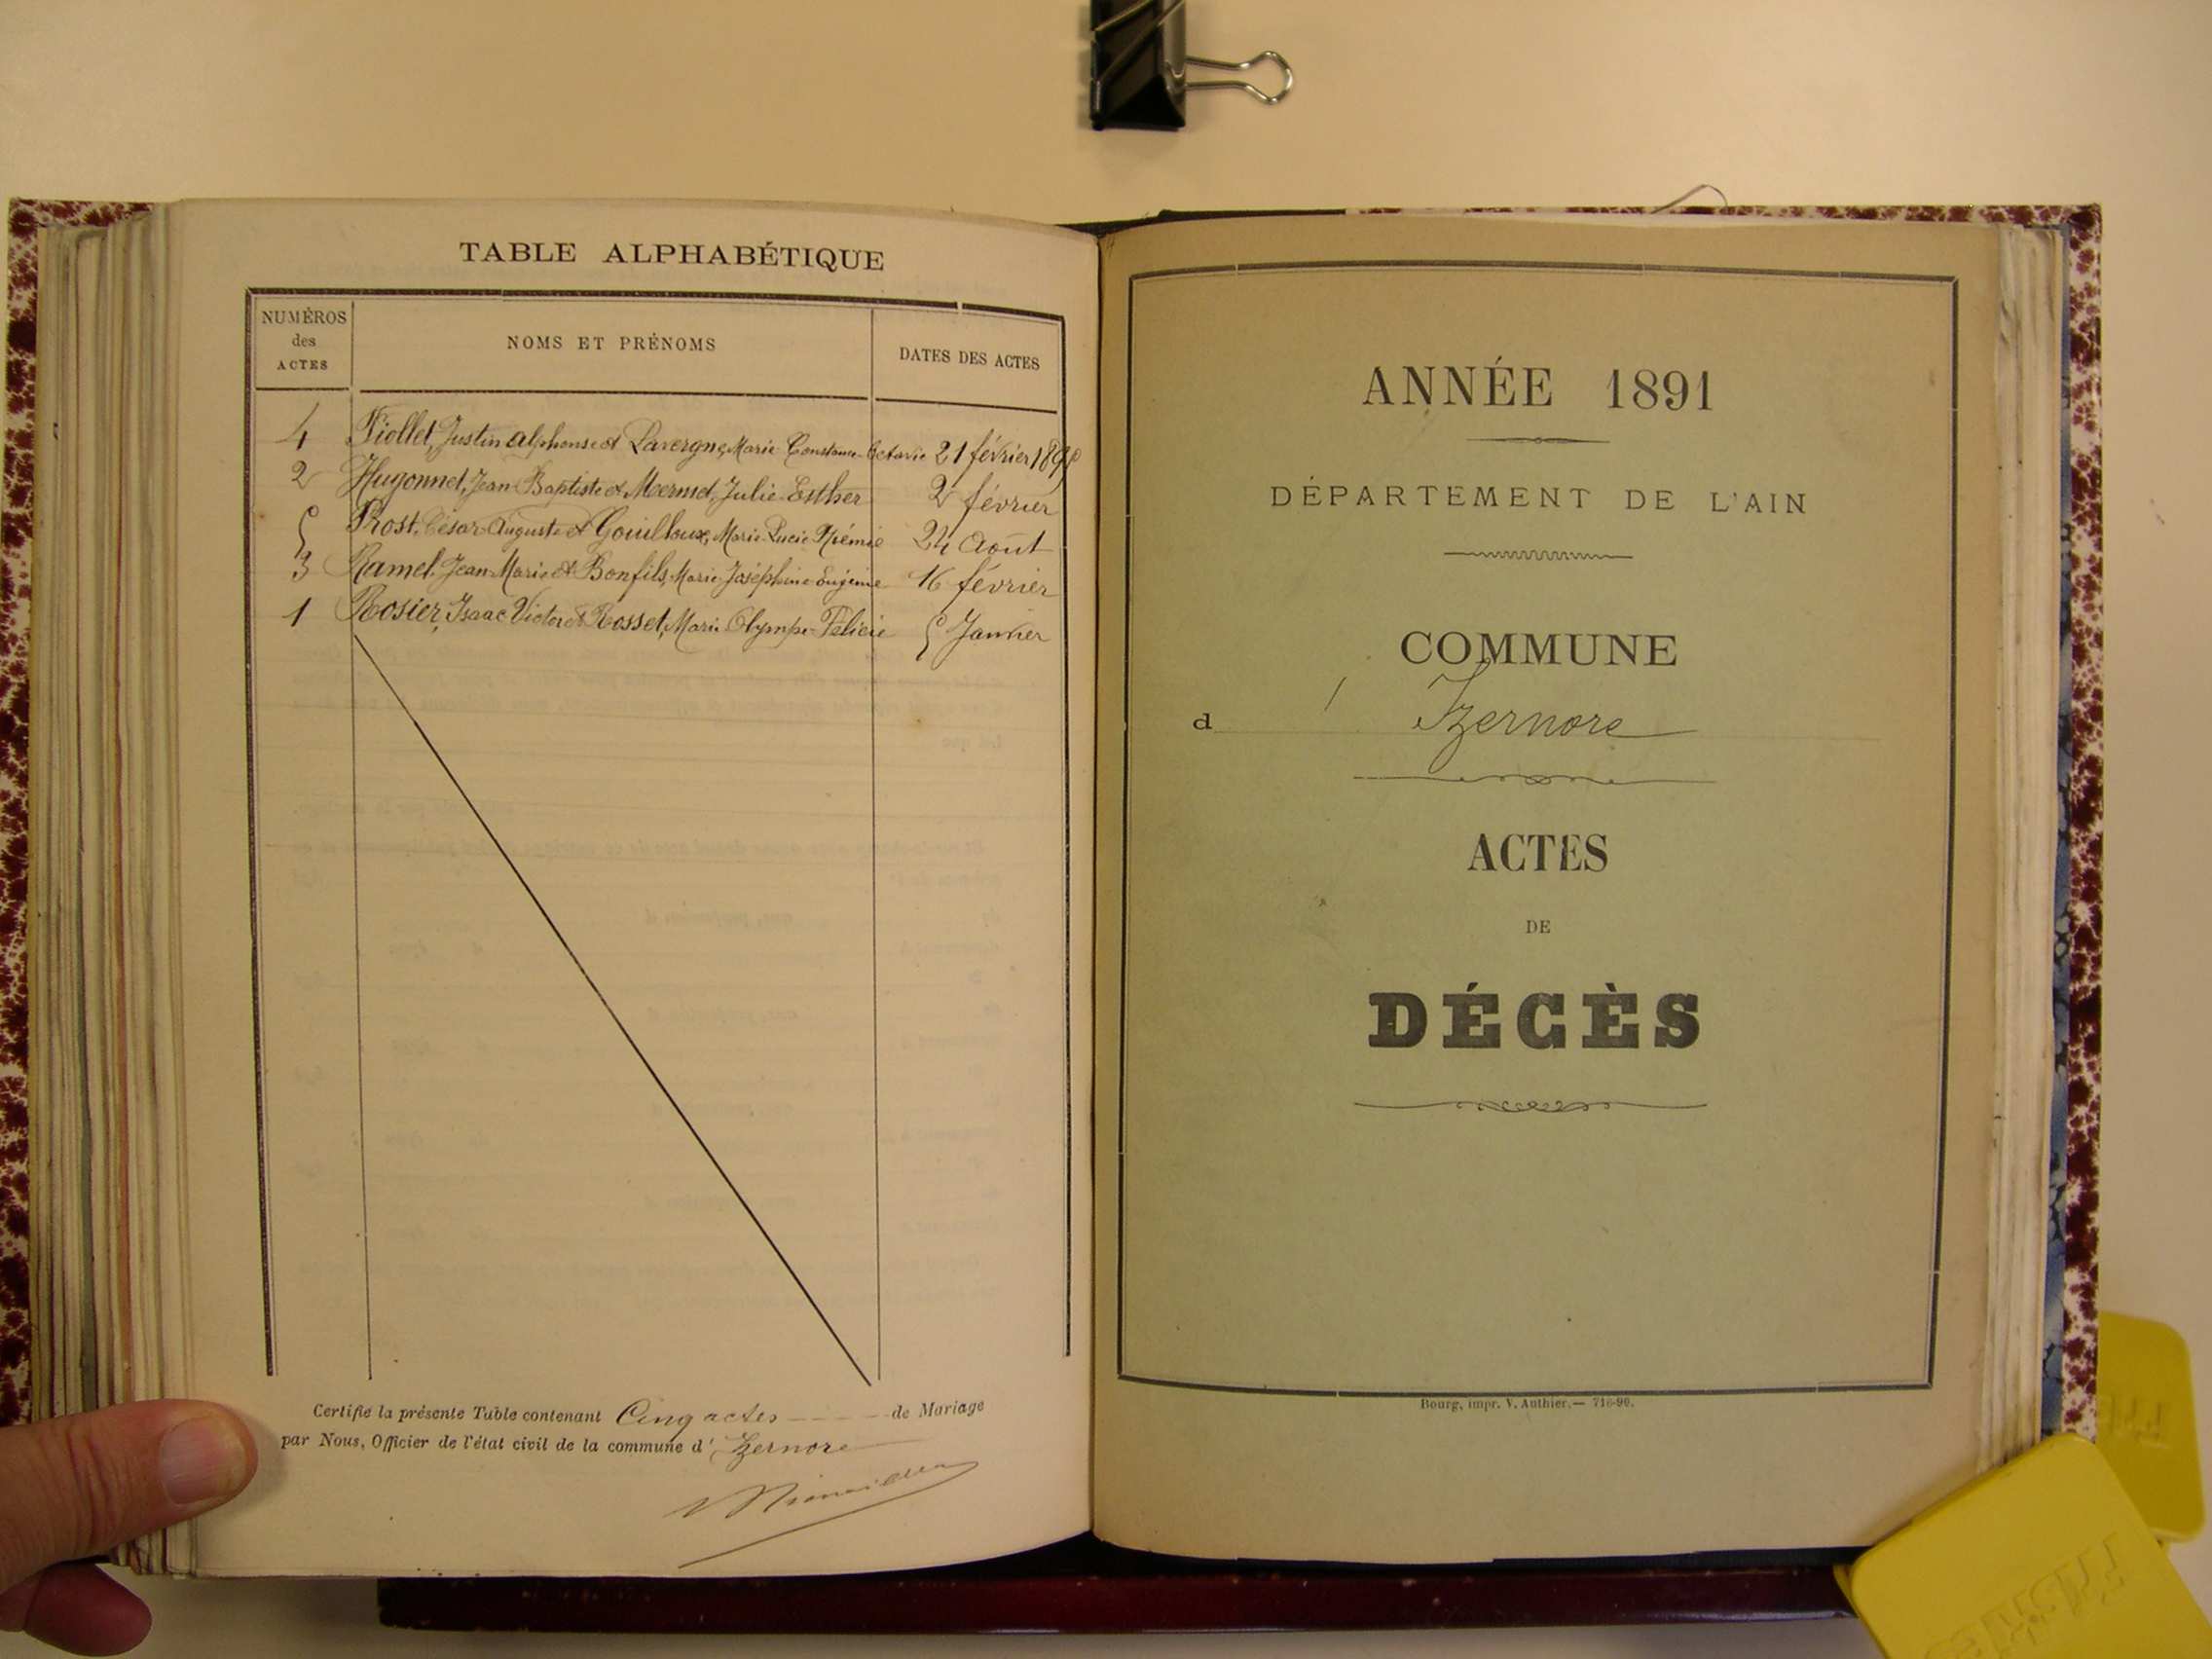 TABLE ALPHABÉTIQUE
NUMÉROS
des
ACTES
NOMS ET PRÉNOMS
DATES DES ACTES
4 Fiollet, Justin Alphonse et Lavergne, Marie Constance Octavie 21 février 1891
2 Hugonnet, Jean-Baptiste et Mermet, Julie-Esther 2 février
5 Prost, César-Auguste et Gouilloux, Marie-Lucie Noémie 24 Août
3 Ramel, Jean-Marie et Bonfils, Marie Joséphine Eugénie 16 février
1 Rosier, Isaac Victor et Rosset, Marie Olympe Félicie 5 Janvier
Certifie la présente Table contenant Cinq actes de Mariage
par Nous, Officier de l'état civil de la commune d'Izernore
ANNÉE 1891
DÉPARTEMENT DE L'AIN
COMMUNE
d' Izernore
ACTES
DE
DÉCÈS
Bourg, impr. V. Authier. — 716-90.